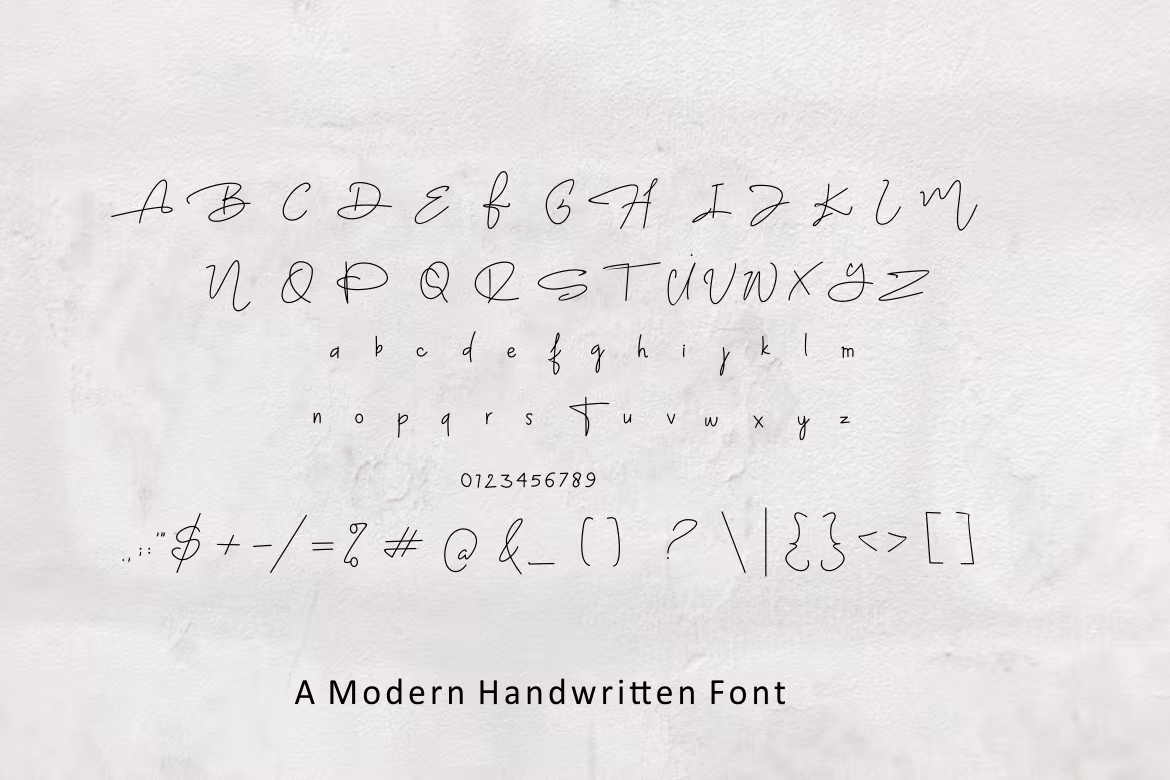 A B C D E f G H I J K l M
N O P Q R S T U V W X Y Z
a b c d e f g h i j k l m
n o p q r s T u v w x y z
0123456789
., ;: '" $ + - / = % # @ & _ ( ) ? \ | { } < > [ ]
A Modern Handwritten Font